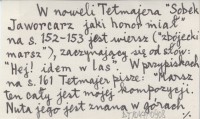 W noweli Tetmajera "Sobek
Jaworcarz jaki honor miał"
na s. 152-153 jest wiersz ("zbójecki
marsz"), zaczynający się od słów:
"Hej! idem w las". W przypiskach
na s. 161 Tetmajer pisze: "Marsz
ten cały jest mojej kompozycji.
Nuta jego jest znana w górach